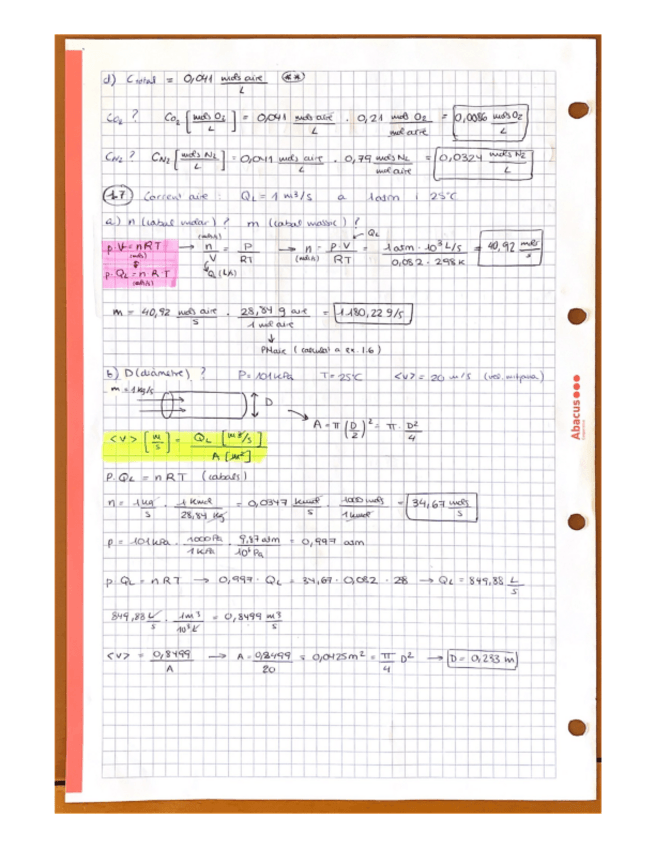 d) C total = 0,041 mols aire / L (**)
CO2 ? CO2 [mols O2 / L] = 0,041 mols aire / L · 0,21 mol O2 / mol aire = 0,0086 mols O2 / L
CN2 ? CN2 [mols N2 / L] = 0,041 mols aire / L · 0,79 mols N2 / mol aire = 0,0324 mols N2 / L
1.7 Corrent aire : QL = 1 m³/s a 1 atm i 25°C
a) n (cabal molar) ? m (cabal massic) ?
p·V = nRT (mols) → n (mols/s) / V = P / RT → n (mols/s) = P·V / RT = 1 atm · 10³ L/s / 0,082 · 298K = 40,92 mols / s
p·QL = n R T (mols/s) QL (L/s) QL
m = 40,92 mols aire / s · 28,84 g aire / 1 mol aire = 1.180,22 g/s
PMaire (calculat a ex. 1.6)
b) D (diàmetre) ? P = 101 kPa T = 25°C <v> = 20 m/s (vel. mitjana)
m = 1 kg/s
D
A = π (D/2)² = π · D² / 4
<v> [m/s] = QL [m³/s] / A [m²]
P·QL = n R T (cabals)
n = 1 kg / s · 1 kmol / 28,84 kg = 0,0347 kmol / s · 1000 mols / 1 kmol = 34,67 mols / s
p = 101 kPa · 1000 Pa / 1 kPa · 9,87 atm / 10⁶ Pa = 0,997 atm
p·QL = n R T → 0,997 · QL = 34,67 · 0,082 · 28 → QL = 849,88 L / s
849,88 L / s · 1 m³ / 10³ L = 0,8499 m³ / s
<v> = 0,8499 / A → A = 0,8499 / 20 = 0,0425 m² = π / 4 D² → D = 0,233 m
Abacus